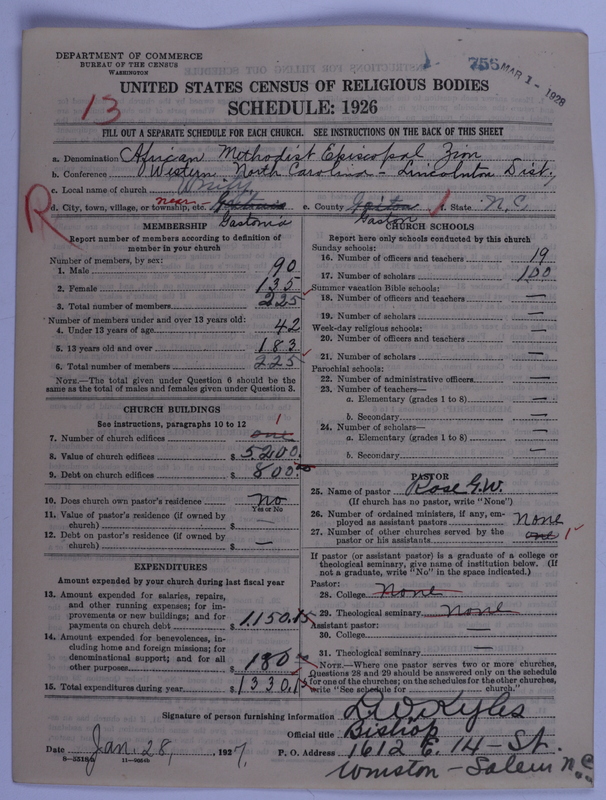 DEPARTMENT OF COMMERCE
BUREAU OF THE CENSUS
WASHINGTON
756 MAR 1 - 1928
13
UNITED STATES CENSUS OF RELIGIOUS BODIES
SCHEDULE: 1926
FILL OUT A SEPARATE SCHEDULE FOR EACH CHURCH. SEE INSTRUCTIONS ON THE BACK OF THIS SHEET
a. Denomination African Methodist Episcopal Zion
b. Conference Western North Carolina - Lincolnton Dist.
c. Local name of church
R
d. City, town, village, or township, etc. near Gastonia e. County Gaston f. State N.C.
MEMBERSHIP
Report number of members according to definition of member in your church
Number of members, by sex:
1. Male 90
2. Female 135
3. Total number of members 225
Number of members under and over 13 years old:
4. Under 13 years of age 42
5. 13 years old and over 183
6. Total number of members 225
NOTE.—The total given under Question 6 should be the
same as the total of males and females given under Question 3.
CHURCH BUILDINGS
See instructions, paragraphs 10 to 12
7. Number of church edifices one 1
8. Value of church edifices $ 5200.
9. Debt on church edifices $ 800.00
10. Does church own pastor's residence No
Yes or No
11. Value of pastor's residence (if owned by
church) $ —
12. Debt on pastor's residence (if owned by
church) $ —
EXPENDITURES
Amount expended by your church during last fiscal year
13. Amount expended for salaries, repairs,
and other running expenses; for im-
provements or new buildings; and for
payments on church debt $ 1,150.15
14. Amount expended for benevolences, in-
cluding home and foreign missions; for
denominational support; and for all
other purposes $ 180.00
15. Total expenditures during year $ 1330.15
CHURCH SCHOOLS
Report here only schools conducted by this church
Sunday schools:
16. Number of officers and teachers 19
17. Number of scholars 100
Summer vacation Bible schools:
18. Number of officers and teachers —
19. Number of scholars —
Week-day religious schools:
20. Number of officers and teachers —
21. Number of scholars —
Parochial schools:
22. Number of administrative officers —
23. Number of teachers—
a. Elementary (grades 1 to 8) —
b. Secondary —
24. Number of scholars—
a. Elementary (grades 1 to 8) —
b. Secondary —
PASTOR
25. Name of pastor Rose G.W.
(If church has no pastor, write "None")
26. Number of ordained ministers, if any, em-
ployed as assistant pastors None
27. Number of other churches served by the
pastor or his assistants one 1
If pastor (or assistant pastor) is a graduate of a college or
theological seminary, give name of institution below. (If
not a graduate, write "No" in the space indicated.)
Pastor:
28. College None
29. Theological seminary None
Assistant pastor:
30. College —
31. Theological seminary —
NOTE.—Where one pastor serves two or more churches,
Questions 28 and 29 should be answered only on the schedule
for one of the churches; on the schedules for the other churches,
write "See schedule for church."
Signature of person furnishing information L.W. Kyles
Official title Bishop
Date Jan. 28, 1927. P. O. Address 1612 E. 14 - St.
8-5518a 11-9554b
Winston - Salem N.C.